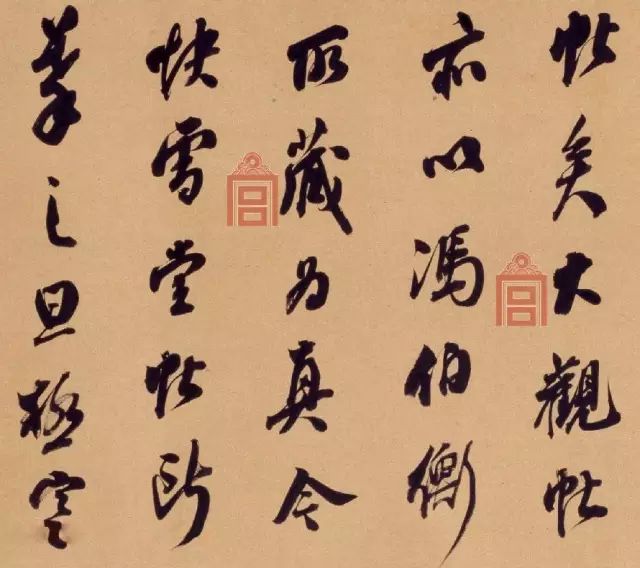 帖矣大觀帖
亦以馮伯衡
所藏為真今
快雪堂帖所
摹之旦極寒